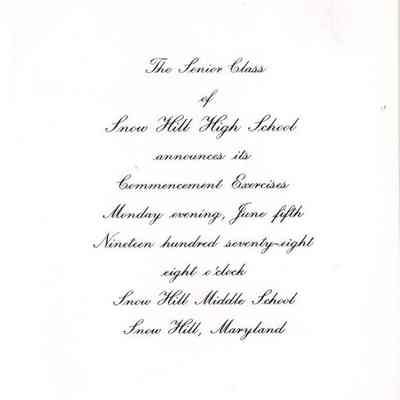 The Senior Class
of
Snow Hill High School
announces its
Commencement Exercises
Monday evening, June fifth
Nineteen hundred seventy-eight
eight o'clock
Snow Hill Middle School
Snow Hill, Maryland